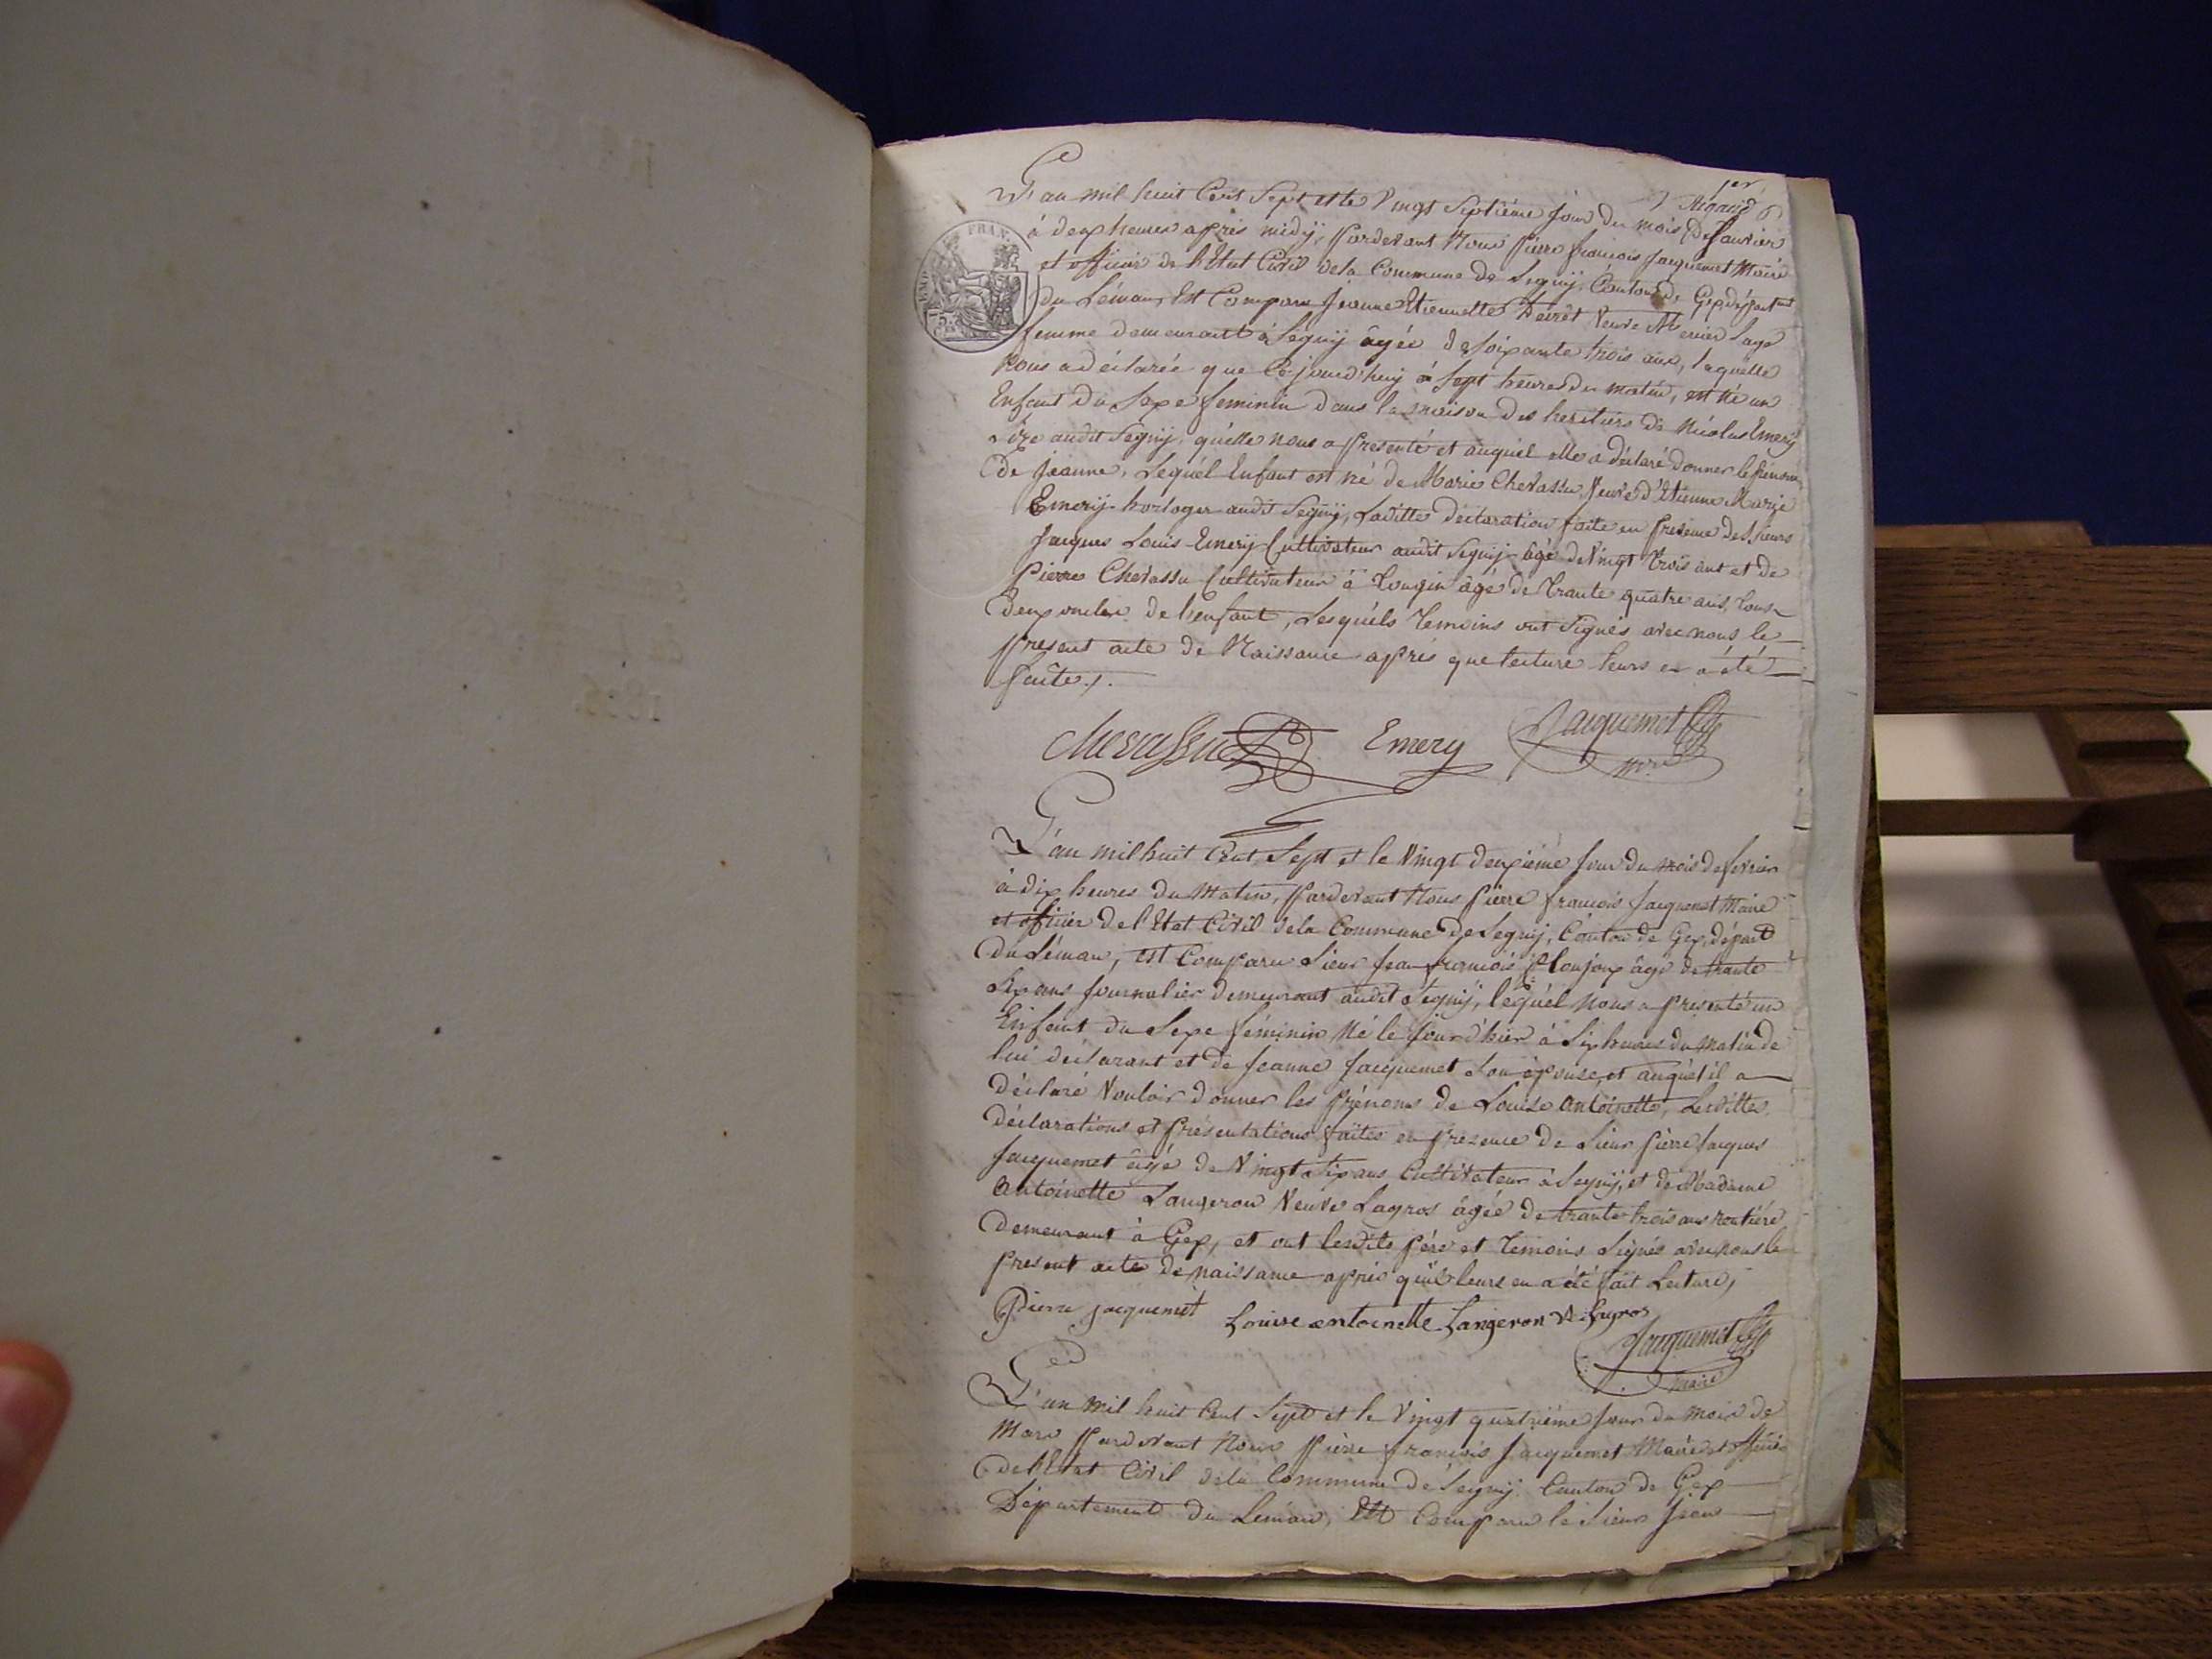 1er
L'an mil huit Cent Sept et le Vingt Septiéme jour du mois de Janvier
à deux heures après midÿ, Pardevant Nous Pierre françois Jacquemet Maire
et officier de l'Etat Civil de la Commune de Segnÿ, Canton de Gex départnt
du Léman, Est Comparu Jeanne Etiennette veuve Mercier Sage
femme demeurant à Segnÿ âgée de Soixante trois ans, laquelle
Nous a déclarée que Ce jourd'huy à Sept heures du matin, est né un
Enfant du Sexe feminin dans la maison des heritiers de Nicolas Emerÿ
audit Segnÿ, qu'elle nous a presenté et auquel elle a déclaré donner le prénom
De Jeanne, Lequel Enfant est né de Marie Chevassu veuve d'Etienne Marie
Emerÿ horloger audit Segnÿ, Laditte déclaration faite en presence des Sieurs
Jacques Louis Emerÿ Cultivateur audit Segnÿ âgé de Vingt trois ans et de
Pierre Chevassu Cultivateur à Tougin âgé de Trante quatre ans, tous
deux oncles de l'enfant, Lesquels Temoins ont Signés avec nous le
present acte de Naissance après que lecture leurs en a été
faite./.
Chevassu Emery Jacquemet
mre
L'an mil huit Cent Sept et le Vingt deuxiéme Jour du mois de fevrier
à dix heures du Matin, Pardevant Nous Pierre françois Jacquemet Maire
et officier de l'Etat Civil de la Commune De Segnÿ, Canton de Gex, départ
Du Léman, est Comparu Sieur Jean françois Ploujoux âgé de trante
Six ans Journalier demeurant audit Segnÿ, lequel Nous a presenté un
Enfant du Sexe féminin Né le Jour d'hier à Six heures du Matin de
lui déclarant et de Jeanne Jacquemet Son épouse, et auquel il a
déclaré Vouloir donner les prénoms de Louise Antoinette, Lesdittes
déclarations et présentations faites en presence de Sieur Pierre Jacques
Jacquemet âgé de Vingt Six ans Cultivateur à Segnÿ, et de Madame
Antoinette Langeron Veuve Lagros âgée de trante trois ans rentière
Demeurant à Gex, et ont lesdits père et Temoins Signés avec nous le
present acte de naissance après qu'il leurs en a été fait Lecture,
Pierre jacquemet Louise antoinette Langeron ve Lagros
Jacquemet
maire
L'an mil huit Cent Sept et le Vingt quatriéme Jour du mois de
Mars Pardevant Nous Pierre françois Jacquemet Maire et officier
de l'Etat Civil de la Commune de Segnÿ Canton de Gex
Département du Léman, Est Comparu le Sieur Jean